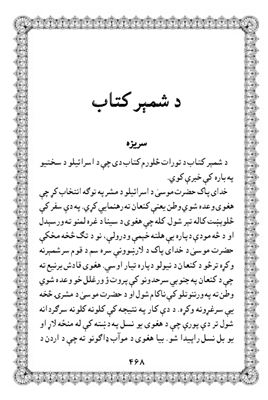 د شمېر کتاب
سریزه
د شمېر کتاب د تورات څلورم کتاب دی چې د اسرائیلو د سختیو
په باره کې خبرې کوي.
خدای پاک حضرت موسیٰ د اسرائیلو د مشر په توګه انتخاب کړ چې
هغوی وعده شوي وطن یعنې کنعان ته رهنمایي کړي. په دې سفر کې
څلوېښت کاله تېر شول کله چې هغوی د سینا د غره لمنو ته ورسېدل
او د څه مودې د پاره یې هلته خېمې ودرولې، نو د تګ څخه مخکې
حضرت موسیٰ د خدای پاک د لارښوونې سره سم د قوم سرشمېرنه
وکړه ترڅو د کنعان د نیولو د پاره تیار اوسي. هغوی قادش برنیع ته
چې د کنعان په جنوبي سرحدونو کې پروت ؤ ورغلل خو وعده شوي
وطن ته په ورننوتلو کې ناکام شول او د حضرت موسیٰ د مشرۍ څخه
یې سرغړونه وکړه. د دې کار په نتیجه کې کلونه کلونه سرګردانه
شول تر دې پورې چې د هغوی یو نسل په دښته کې له منځه لاړ او
یو بل نسل راپیدا شو. بیا هغوی د موآب ډاګونو ته چې د اردن د
۴۶۸